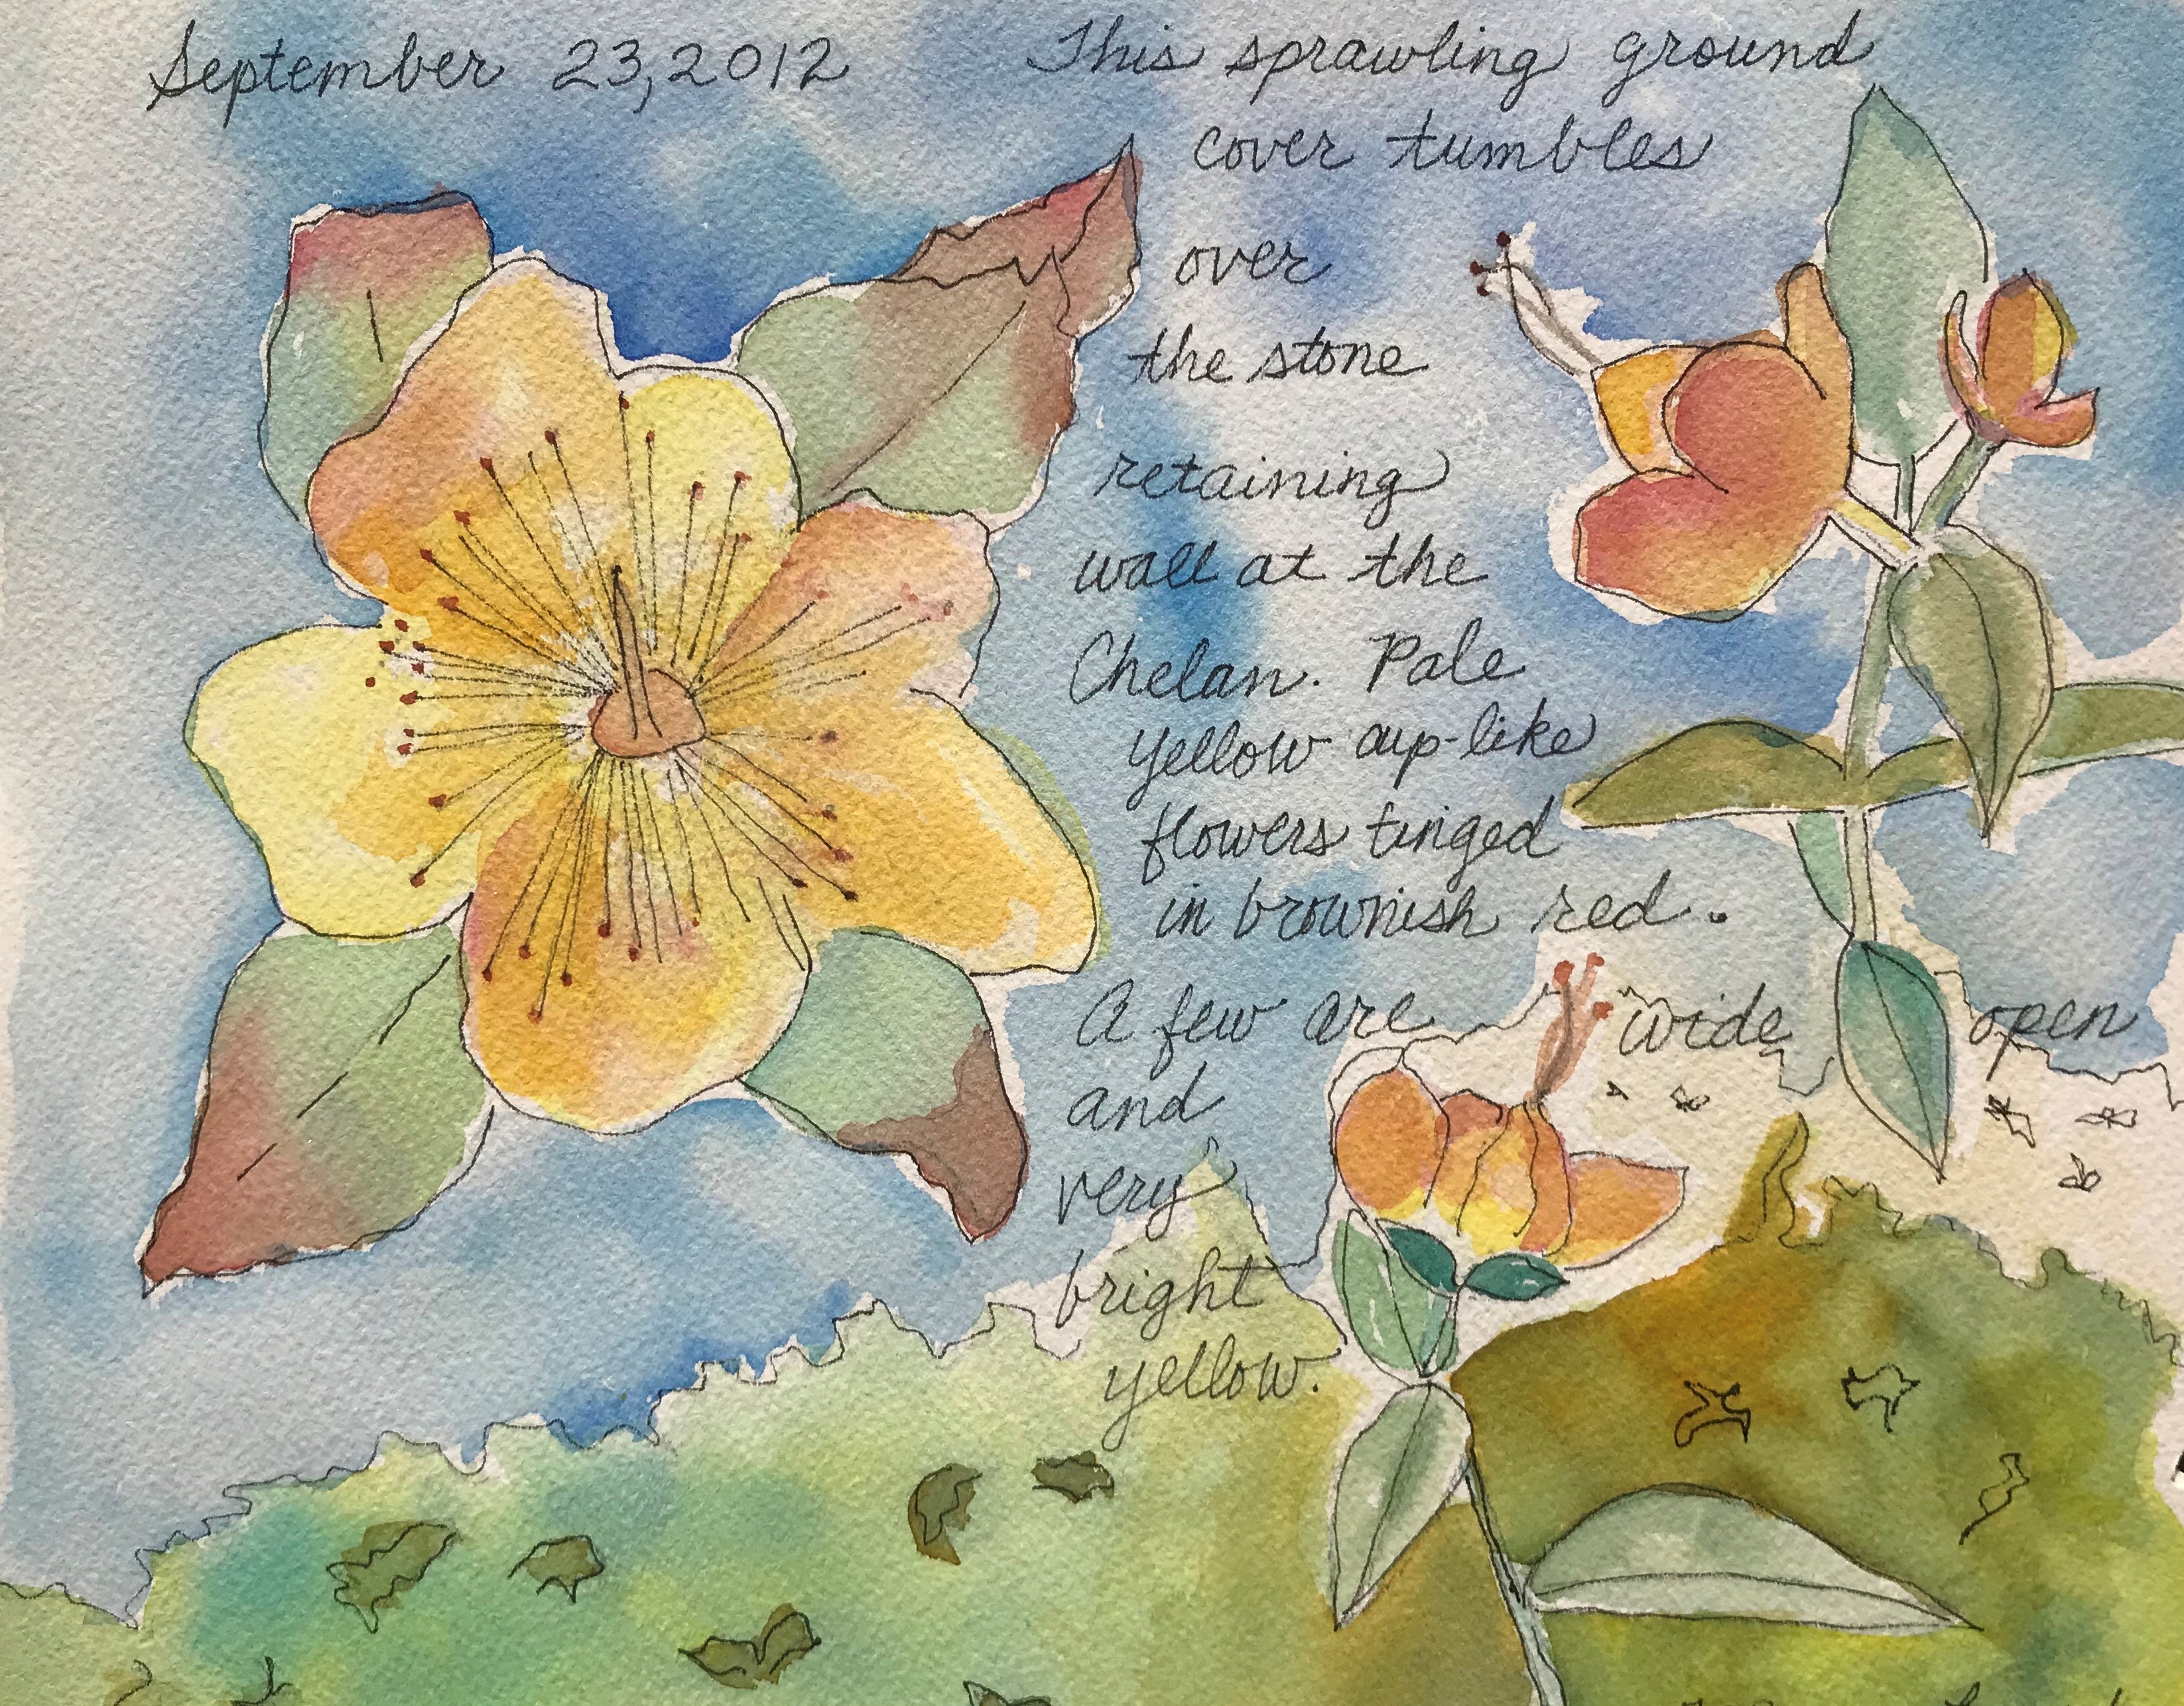 September 23, 2012
This sprawling ground
cover tumbles
over
the stone
retaining
wall at the
Chelan. Pale
yellow cup-like
flowers tinged
in brownish red.
A few are wide open
and
very
bright
yellow.